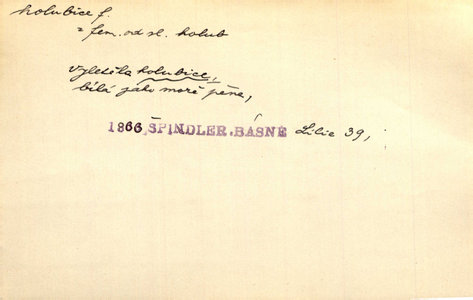 holubice f.
z fem. od sl. holub
vyletěla holubice,
bílá jako moře pěna,
1866 ŠPINDLER.BÁSNĚ Lilie 39,